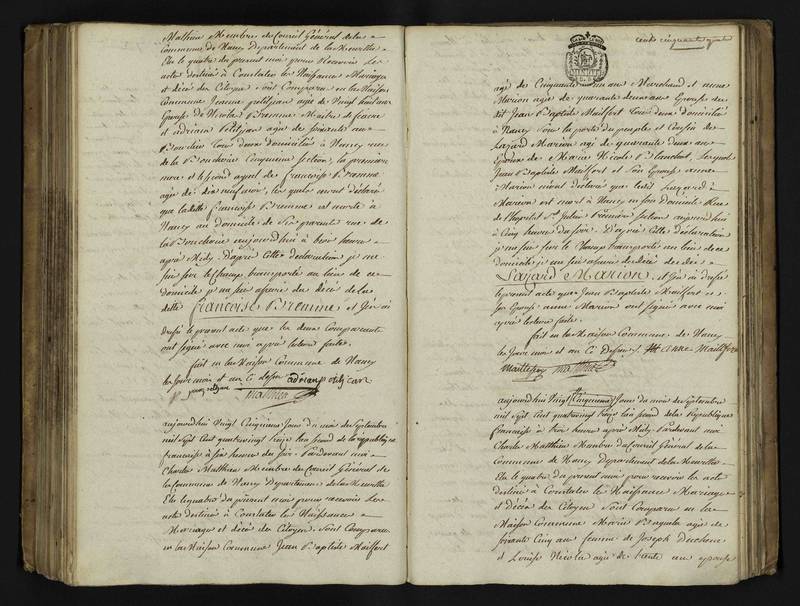 Mathieu Membre du Conseil Général de la
Commune de Nancy Département de la Meurthe
Elu le quatre du présent mois pour Recevoir les
actes destinés à Constater les Naissances Mariages
et décès des Citoyens Sont Comparus en la Maison
Commune Jeanne petitjean agée de Vingt huit ans
Epouse de Nicolas Bremme Maitre de
et adrian Petitjean agé de soixante ans
Boucher tous deux domiciliés à Nancy rue
de la Boucherie Cinquieme section, la premiere
mere et le second ayeul de françoise Bremme
agée de dix neuf mois, les quels m'ont déclaré
que ladite françoise Bremme est morte à
Nancy au domicile de ses parents rue de
la Boucherie aujourd'hui à trois heures
après Midy. D'après cette déclaration je me
suis sur le champ transporté au lieu de ce
domicile je me suis assuré du décès de la
ditte Françoise Bremme et j'en ai
dressé le present acte que les deux Comparants
ont signé avec moi après lecture faite.
fait en la Maison Commune de Nancy
les jour mois et an ci dessus adrian petitjean
Mathieu
aujourd'hui Vingt Cinquieme jour du mois de Septembre
mil Sept Cent quatrevingt treize l'an second de la republique
francaise à six heures du soir. Pardevant moi
Charles Mathieu Membre du Conseil Général de
la Commune de Nancy Departement de la Meurthe
Elu le quatre du présent mois pour recevoir les
actes destinés à Constater les Naissances
Mariages et décès des Citoyens. Sont Comparus
en la Maison Commune Jean Baptiste Maillfert
cent cinquante quatre
agé de Cinquante un ans Marchand et anne
Marion agée de quarante deux ans Epouse du
dit Jean Baptiste Maillfert tous deux domiciliés
à Nancy sous la porte du peuple et Cousin de
Lazard Marion agé de quarante deux ans
Epoux de Marie Nicole Blanchot, Lesquels
Jean Baptiste Maillfert et son Epouse anne
Marion m'ont déclaré que ledit Lazard
Marion est mort à Nancy en son domicile Rue
de l'hopital St. Julien première Section aujourd'hui
à Cinq heures du soir. D'après cette déclaration
je me suis sur le Champ transporté au lieu de ce
domicile je me suis assuré du décès du dit
Lazard Marion, et j'en ai dressé
le présent acte que Jean Baptiste Maillfert et
son Epouse anne Marion ont signé avec moi
après lecture faite.
fait en la Maison Commune de Nancy
les jour mois et an Ci Dessus anne Maillfert
maillefert Mathieu
aujourd'hui Vingt Cinquieme Jour du mois de Septembre
mil Sept Cent quatrevingt treize l'an second de la Republique
française à trois heures après Midy. Pardevant moi
Charles Matthieu Membre du Conseil Général de la
Commune de Nancy Département de la Meurthe
Elu le quatre du présent mois pour recevoir les actes
destinés à Constater les Naissances Mariages
et décès des Citoyens Sont Comparus en la
Maison Commune Marie agée de
soixante Cinq ans femme de Joseph Duchene
et Louise Nicolas agée de trente ans épouse